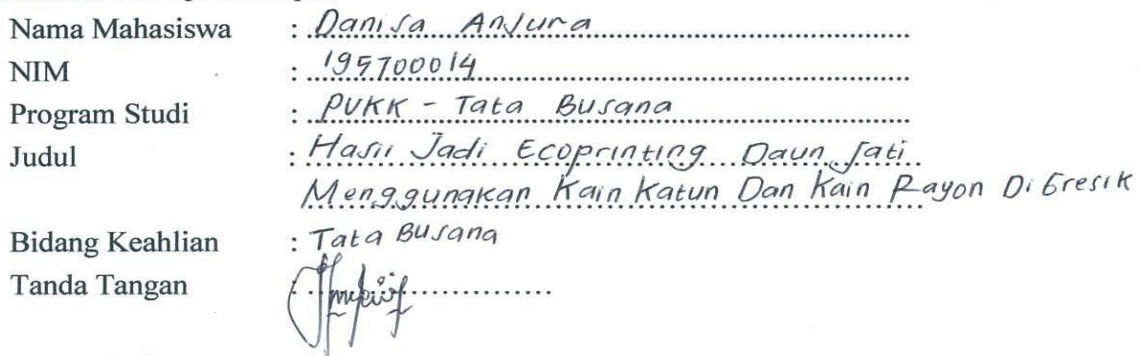 Nama Mahasiswa : Danisa Anjura
NIM : 195700014
Program Studi : PVKK - Tata Busana
Judul : Hasil Jadi Ecoprinting Daun Jati
Menggunakan Kain Katun Dan Kain Rayon Di Gresik
Bidang Keahlian : Tata Busana
Tanda Tangan :